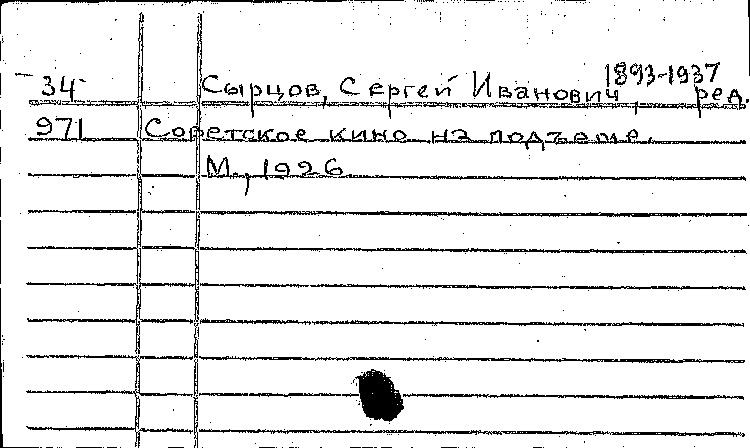 34 Сырцов, Сергей Иванович, 1893-1937 ред.
971 Советское кино на подъеме.
М., 1926